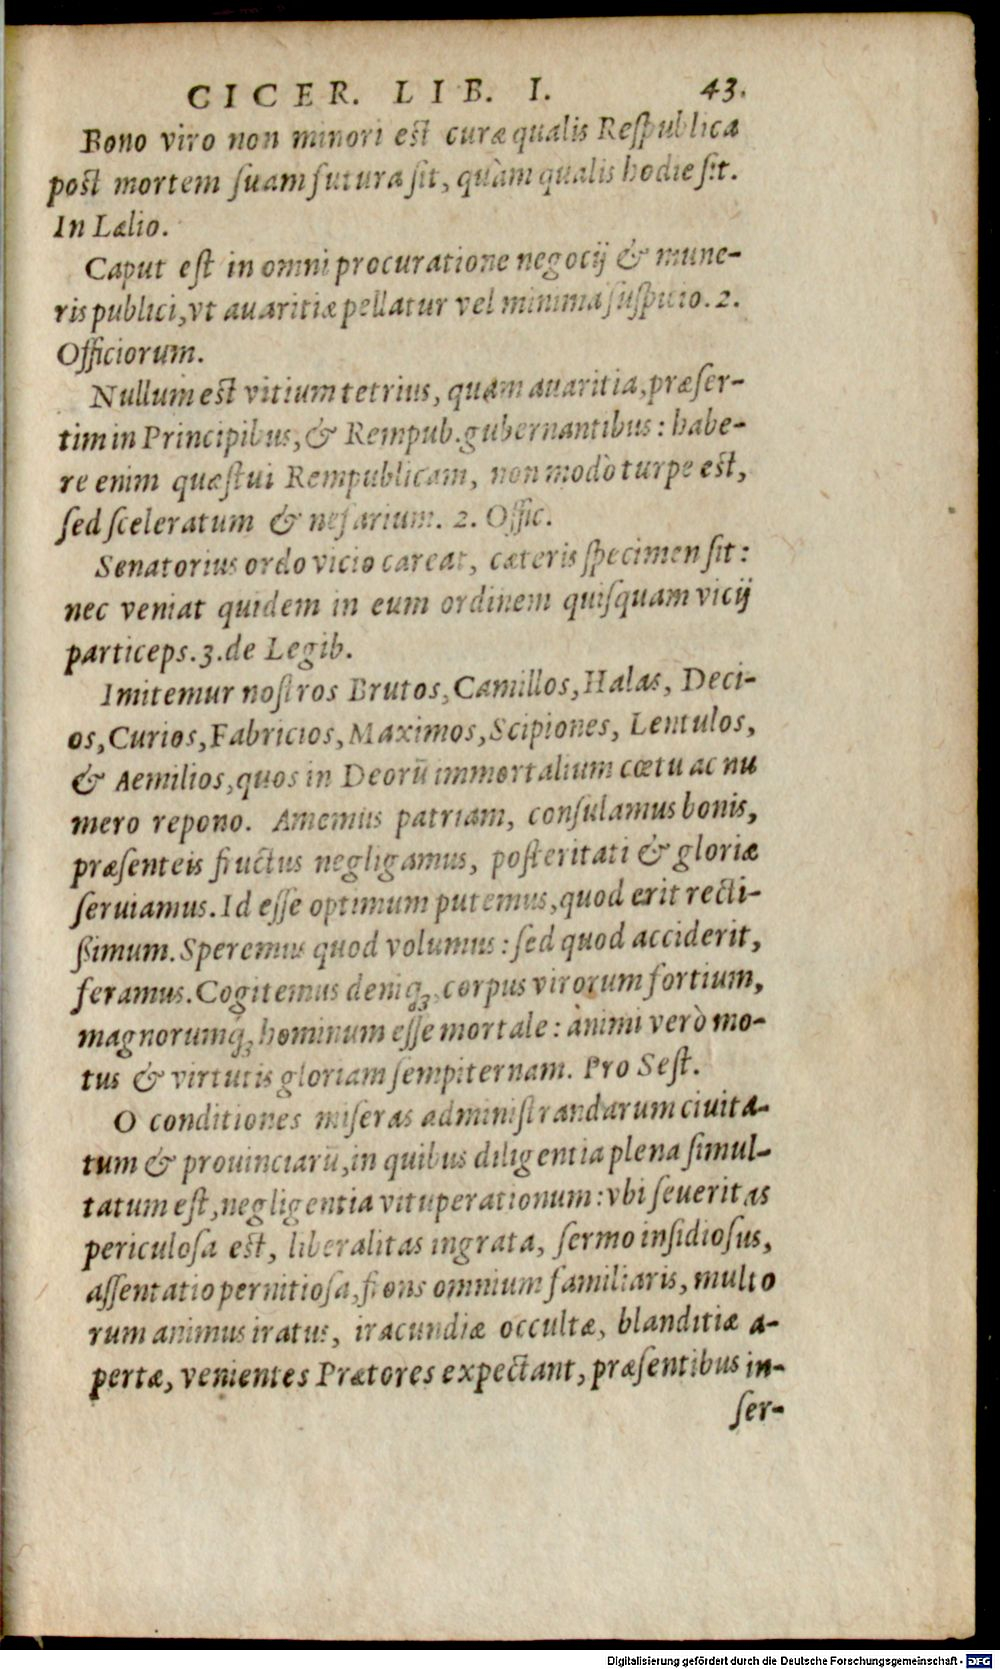 CICER. LIB. I. 43.
Bono viro non minori est curæ qualis Reſpublica
post mortem ſuam futura ſit, quàm qualis hodie ſit.
In Lælio.
Caput eſt in omni procuratione negocij & mune-
ris publici, vt auaritiæ pellatur vel minima ſuſpitio. 2.
Officiorum.
Nullum est vitium tetrius, quam auaritia, præſer-
tim in Principibus, & Rempub. gubernantibus: habe-
re enim quæſtui Rempublicam, non modò turpe est,
ſed ſceleratum & nefarium. 2. Offic.
Senatorius ordo vicio careat, cæteris ſpecimen ſit:
nec veniat quidem in eum ordinem quiſquam vicij
particeps. 3. de Legib.
Imitemur noſtros Brutos, Camillos, Halas, Deci-
os, Curios, Fabricios, Maximos, Scipiones, Lentulos,
& Aemilios, quos in Deorū immortalium cœtu ac nu
mero repono. Amemus patriam, conſulamus bonis,
præſenteis fructus negligamus, poſteritati & gloriæ
ſeruiamus. Id eſſe optimum putemus, quod erit recti-
ßimum. Speremus quod volumus: ſed quod acciderit,
feramus. Cogitemus deniq;, corpus virorum fortium,
magnorumq́; hominum eſſe mortale: animi verò mo-
tus & virtutis gloriam ſempiternam. Pro Seſt.
O conditiones miſeras adminiſtrandarum ciuita-
tum & prouinciarū, in quibus diligentia plena ſimul-
tatum eſt, negligentia vituperationum: vbi ſeueritas
periculoſa est, liberalitas ingrata, ſermo inſidioſus,
aſſentatio pernitioſa, frons omnium familiaris, multo
rum animus iratus, iracundiæ occultæ, blanditiæ a-
pertæ, venientes Prætores expectant, præſentibus in-
ſer-
Digitalisierung gefördert durch die Deutsche Forschungsgemeinschaft - DFG